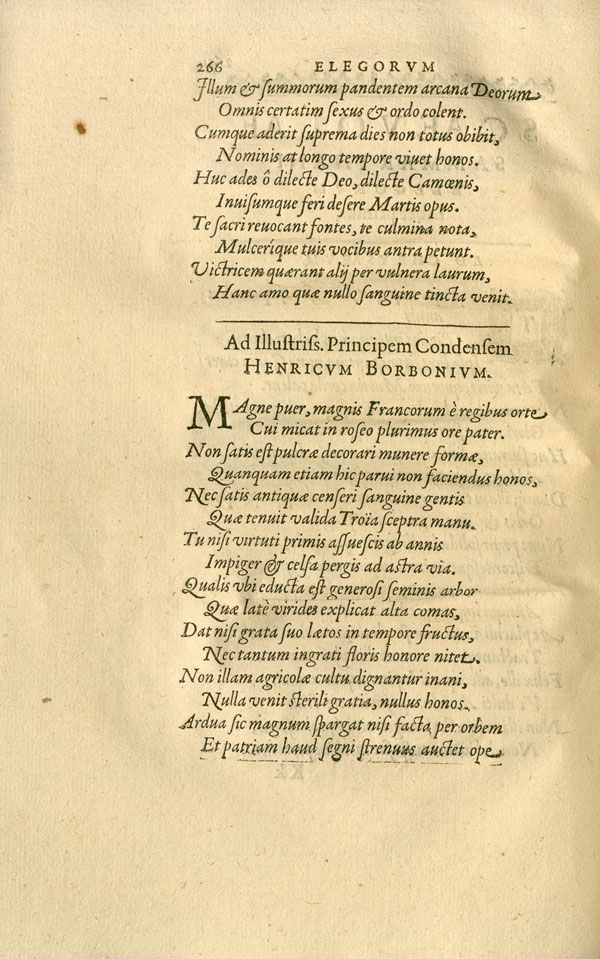 266 ELEGORVM
Illum & summorum pandentem arcana Deorum
Omnis certatim sexus & ordo colent.
Cumque aderit suprema dies non totus obibit,
Nominis at longo tempore viuet honos.
Huc ades ô dilecte Deo, dilecte Camœnis,
Inuisumque feri desere Martis opus.
Te sacri reuocant fontes, te culmina nota,
Mulceríque tuis vocibus antra petunt.
Victricem quærant alij per vulnera laurum,
Hanc amo quæ nullo sanguine tincta venit.
Ad Illustriss. Principem Condensem
HENRICVM BORBONIVM.
MAgne puer, magnis Francorum è regibus orte
Cui micat in roseo plurimus ore pater.
Non satis est pulcræ decorari munere formæ,
Quanquam etiam hic parui non faciendus honos,
Nec satis antiquæ censeri sanguine gentis
Quæ tenuit valida Troïa sceptra manu.
Tu nisi virtuti primis assuescis ab annis
Impiger & celsa pergis ad astra via.
Qualis vbi educta est generosi seminis arbor
Quæ latè virides explicat alta comas,
Dat nisi grata suo lætos in tempore fructus,
Nec tantum ingrati floris honore nitet.
Non illam agricolæ cultu dignantur inani,
Nulla venit sterili gratia, nullus honos.
Ardua sic magnum spargat nisi facta per orbem
Et patriam haud segni strenuus auctet ope